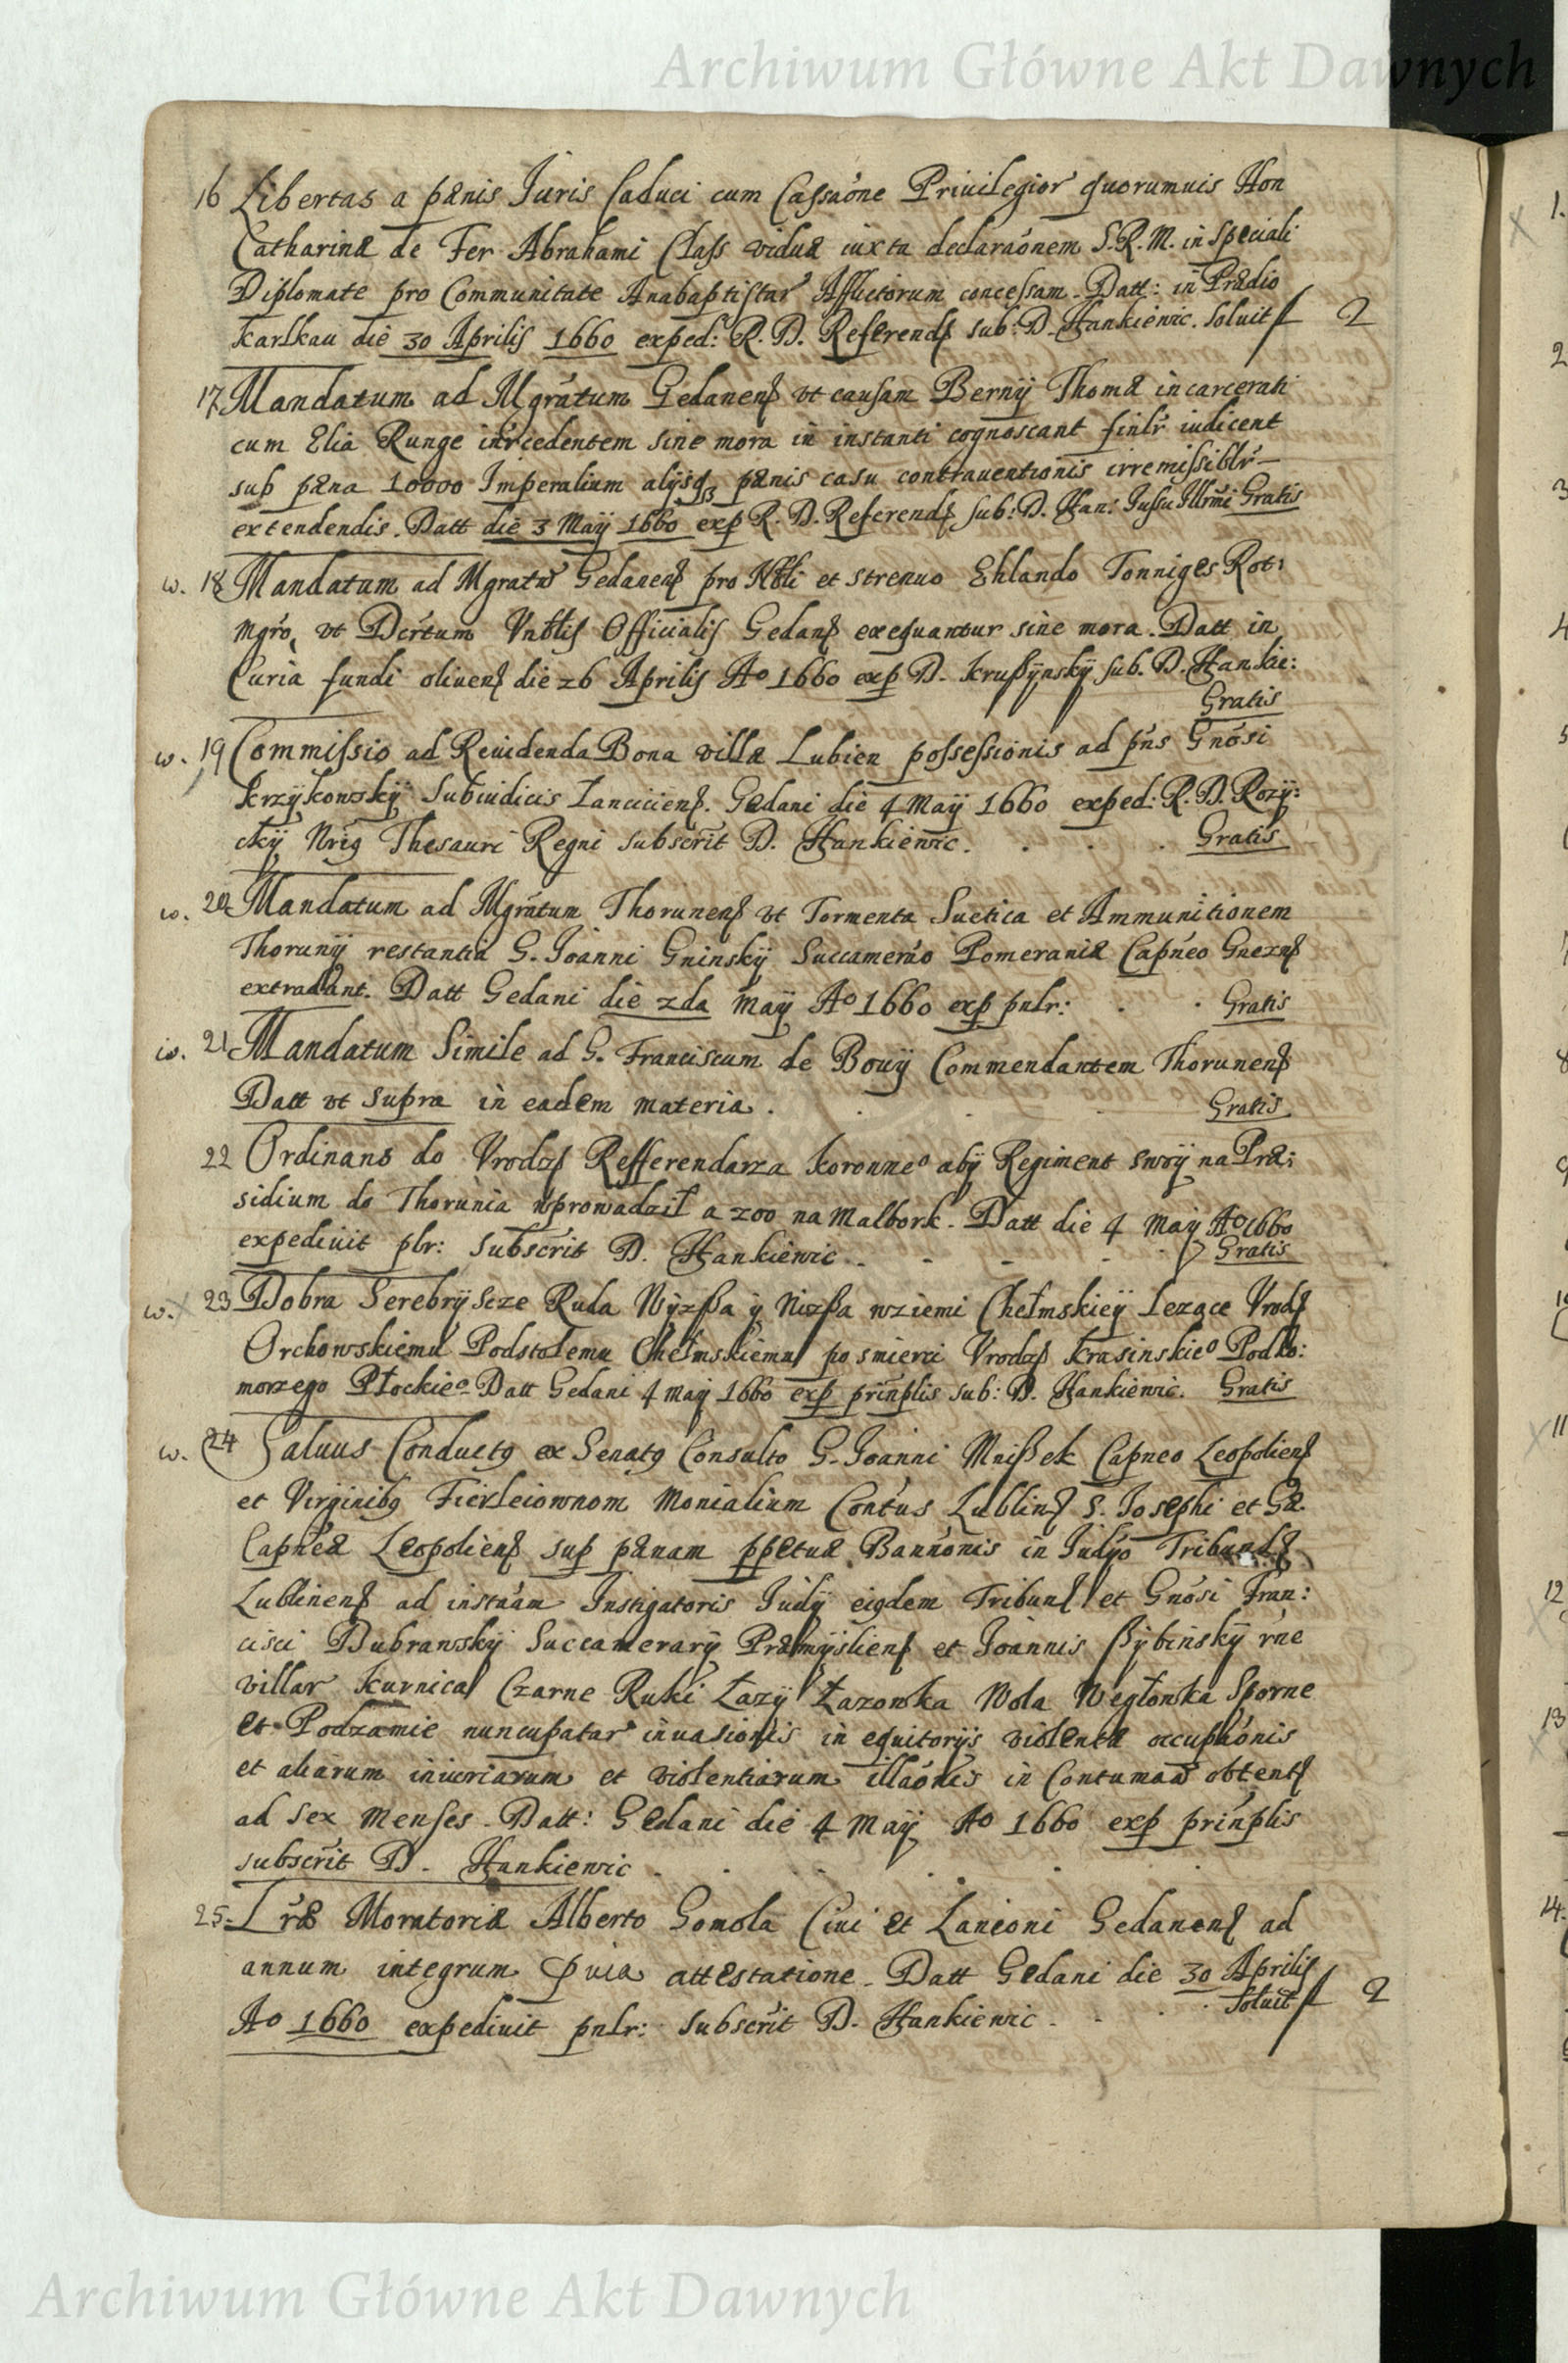 Archiwum Główne Akt Dawnych
16 Libertas a pœnis Juris Caduci cum Cassaóne Priuilegior quorumuis Hon
Catharinæ de Fer Abrahami Class viduæ iuxta declaraónem S.R.M. in Speciali
Diplomate pro Communitate Anabaptistar Afflictorum concessam. Datt: in Prædio
Karlkau die 30 Aprilis 1660 exped: R. D. Referend sub: D. Hankiewic. Soluit f 2
17 Mandatum ad Mgrátum Gedanens vt causam Bernÿ Thomæ incarcerati
cum Elia Runge intercedentem sine mora in instanti cognoscant finlr iudicent
sub pæna 10000 Imperalium alijsq pænis casu contrauentionis irremissiblr
extendendis. Datt die 3 Maÿ 1660 exp R. D. Referend sub: D. Han: Jussu Illrmi Gratis
w. 18 Mandatum ad Mgratū Gedanens pro Nbli et strenuo Ehlando Tonniges Rot:
Mgro, vt Dcrtum Vnblis Officialis Gedans exequantur sine mora. Datt in
Curia fundi oliuens die 26 Aprilis Aº 1660 exp D. Krußÿnskÿ sub. D. Hankie:
Gratis
w. 19 Commissio ad Reuidenda Bona villæ Lubien possessionis ad pńs Gnosi
Krzÿkowskÿ Subiudicis Lanciciens. Gedani die 4 Maÿ 1660 exped: R. D. Rozÿ:
ckÿ Nrig Thesauri Regni subscrit D. Hankiewic. . . . Gratis
w. 20 Mandatum ad Mgrátum Thorunens vt Tormenta Suetica et Ammunitionem
Thorunÿ restantia G. Joanni Gninskÿ Succameráo Pomeraniæ Capneo Gnezns
extradant. Datt Gedani die 2da Maÿ Aº 1660 exp pnlr: . . Gratis
w. 21 Mandatum Simile ad G. Franciscum de Bouÿ Commendantem Thorunens
Datt vt supra in eadem materia. . . . Gratis
22 Ordinans do Vrodzs Refferendarza Koronneº abÿ Regiment swóÿ na Præ:
sidium do Thorunia wprowadził a 200 na Malbork. Datt die 4 Maÿ Aº 1660
expediuit plr: Subscrit D. Hankiewic . . . . Gratis
w. 23 Dobra Serebrÿscze Ruda Wÿzßa ÿ Nizßa w ziemi Chełmskieÿ lezące Vrods
Orchowskiemu Podstolemu Chełmskiemu po smierci Vrodzs Krasinskieº Podko:
morzego Płockieº Datt Gedani 4 Maÿ 1660 exp prinplis sub: D. Hankiewic. Gratis
w. 24 Saluus Conductg ex Senatg Consulto G. Joanni Mnißek Capneo Leopoliens
et Virginibg Fierleiownom Monialium Contus Lublins S. Josephi et Gæ.
Capneæ Leopoliens sup pænam ppetuæ Bannónis in Judÿo Tribunals
Lublinens ad instáam Instigatoris Judÿ eigdem Tribunl et Gnosi Fran:
cisci Dubrawskÿ Succamerarÿ Præmÿsliens et Joannis ßÿbinskÿ rne
villar Kurnica Czarne Ruki Łazÿ Łazowka Wola Węgłowska Sporne
et Podzamie nuncupatar inuasionis in equitorijs violentæ occupaónis
et aliarum iniuriarum et violentiarum illaónis in Contumaā obtents
ad Sex Menses. Datt: Gedani die 4 Maÿ Aº 1660 exp prinplis
subscrit D. Hankiewic . . . . .
25 Lræ Moratoriæ Alberto Gomola Ciui et Lanioni Gedanens ad
annum integrum præuia attestatione. Datt Gedani die 30 Aprilis
Aº 1660 expediuit pnlr: subscrit D. Hankiewic . . . Soluit f 2
Archiwum Główne Akt Dawnych